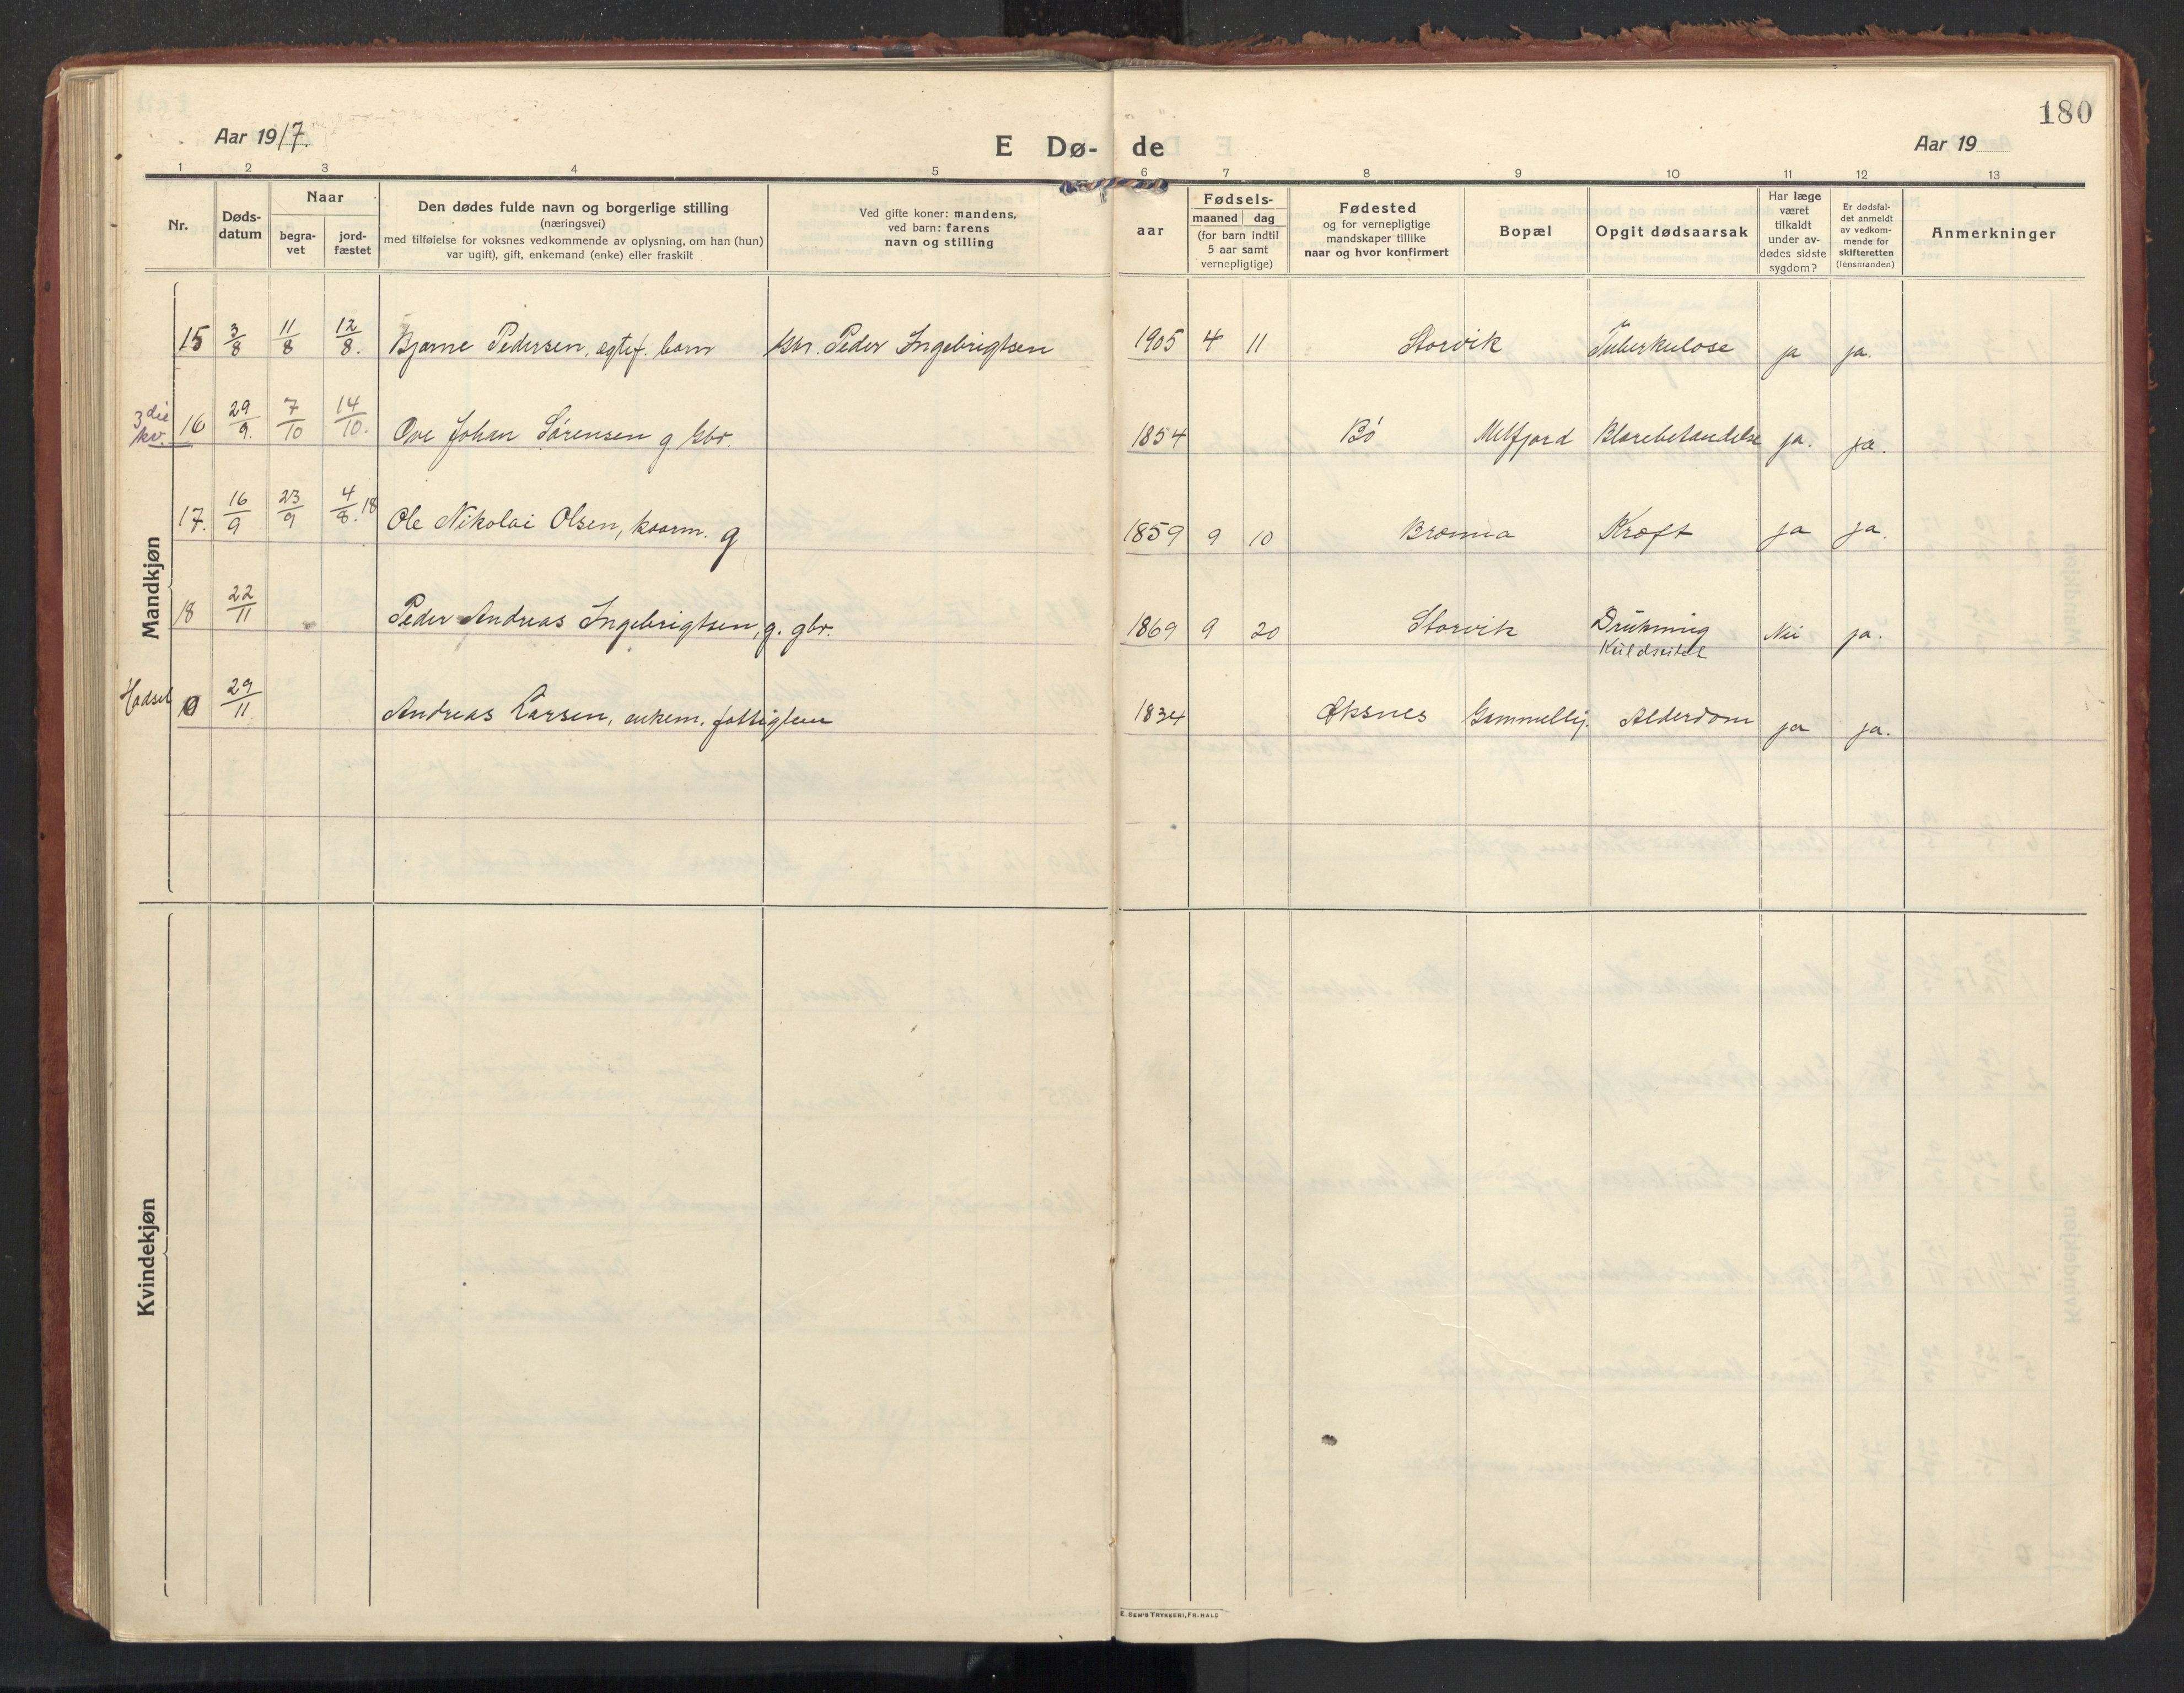 180
Aar 1917.
E Dø- de
Aar 19
1 2 3 4 5 6 7 8 9 10 11 12 13
Nr.
Døds-
datum
Naar
begra-
vet
jord-
fæstet
Den dødes fulde navn og borgerlige stilling
(næringsvei)
med tilføielse for voksnes vedkommende av oplysning, om han (hun)
var ugift), gift, enkemand (enke) eller fraskilt
Ved gifte koner: mandens,
ved barn: farens
navn og stilling
aar
Fødsels-
maaned dag
(for barn indtil
5 aar samt
vernepligtige)
Fødested
og for vernepligtige
mandskaper tillike
naar og hvor konfirmert
Bopæl
Opgit dødsaarsak
Har læge
været
tilkaldt
under av-
dødes sidste
sygdom?
Er dødsfal-
det anmeldt
av vedkom-
mende for
skifteretten
(lensmanden)
Anmerkninger
Mandkjøn
15 3/8 11/8 12/8. Bjarne Pedersen, ægtef. barn Gbr. Peder Ingebrigtsen 1905 4 11 Storvik Tuberkulose ja ja.
3die
kv.
16 29/9. 7/10 14/10. Ove Johan Sørensen g gbr. 1854 Bø Melfjord Blærebetændelse ja. ja.
17. 16/9 23/9 4/8.18 Ole Nikolai Olsen, kaarm. g 1859 9 10 Bremna Kræft ja ja.
18 22/11 Peder Andreas Ingebrigtsen, g. gbr. 1869 9 20 Storvik Drukning
Kuldseilet Nei ja.
Hadsel 0 29/11 Andreas Larsen, enkem. fattiglem 1834 Øksnes Gammellej. Alderdom ja ja.
Kvindekjøn
E. SEM'S TRYKKERI, FR. HALD